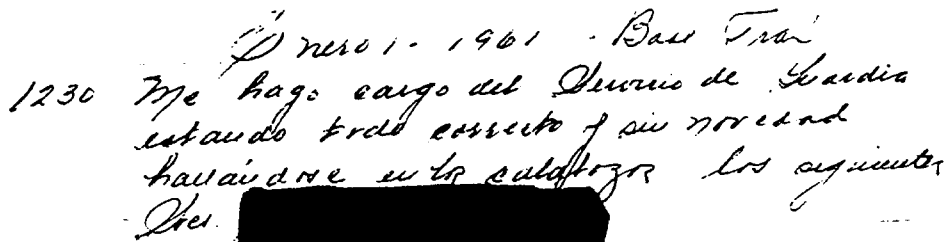 Enero 1 - 1961 - Base Trax
1230 Me hago cargo del Servicio de Guardia
estando todo correcto y sin novedad
hallándose en los calabozos los siguientes
Sres.